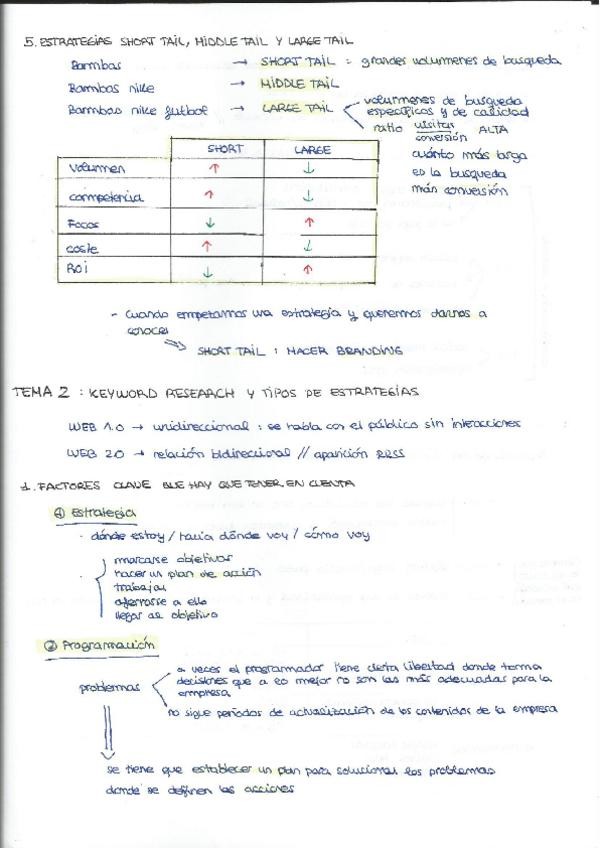 5. ESTRATEGIAS SHORT TAIL, MIDDLE TAIL Y LARGE TAIL
Bambas → SHORT TAIL : grandes volumenes de busqueda
Bambas nike → MIDDLE TAIL
Bambas nike futbol → LARGE TAIL
volumenes de busqueda
específicos y de calidad
ratio visitas / conversión ALTA
cuánto más larga
es la busqueda
más conversión
SHORT LARGE
Volumen ↑ ↓
competencia ↑ ↓
Focos ↓ ↑
coste ↑ ↓
ROI ↓ ↑
- cuando empezamos una estrategia y queremos darnos a
conocer
⇒ SHORT TAIL : HACER BRANDING
TEMA 2 : KEYWORD RESEARCH Y TIPOS DE ESTRATEGIAS
WEB 1.0 → unidireccional : se habla con el público sin interacciones
WEB 2.0 → relación bidireccional // aparición RRSS
1. FACTORES CLAVE QUE HAY QUE TENER EN CUENTA
① Estrategia
· dónde estoy / hacia dónde voy / cómo voy
marcarse objetivos
hacer un plan de acción
trabajar
aferrarse a ello
llegar al objetivo
② Programación
problemas
a veces el programador tiene cierta libertad donde toma
decisiones que a lo mejor no son las más adecuadas para la
empresa
no sigue periodos de actualización de los contenidos de la empresa
se tiene que establecer un plan para solucionar los problemas
donde se definen las acciones